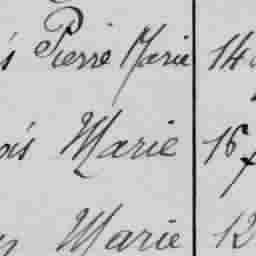 s Pierre Marie 14
ois Marie 16
Marie 12